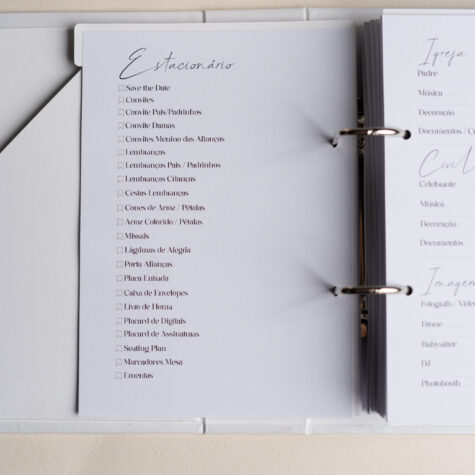 Estacionário
Save the Date
Convites
Convite Pais/Padrinhos
Convite Damas
Convites Menino das Alianças
Lembranças
Lembranças Pais / Padrinhos
Lembranças Crianças
Cestas Lembranças
Cones de Arroz / Pétalas
Arroz Colorido / Pétalas
Missais
Lágrimas de Alegria
Porta Alianças
Placa Entrada
Caixa de Envelopes
Livro de Honra
Placard de Digitais
Placard de Assinaturas
Seating Plan
Marcadores Mesa
Ementas
Igreja
Padre
Música
Decoração
Documentos /
Celebrante
Música
Decoração
Documentos
Fotografo /
Drone
Babysitter
DJ
Photobooth